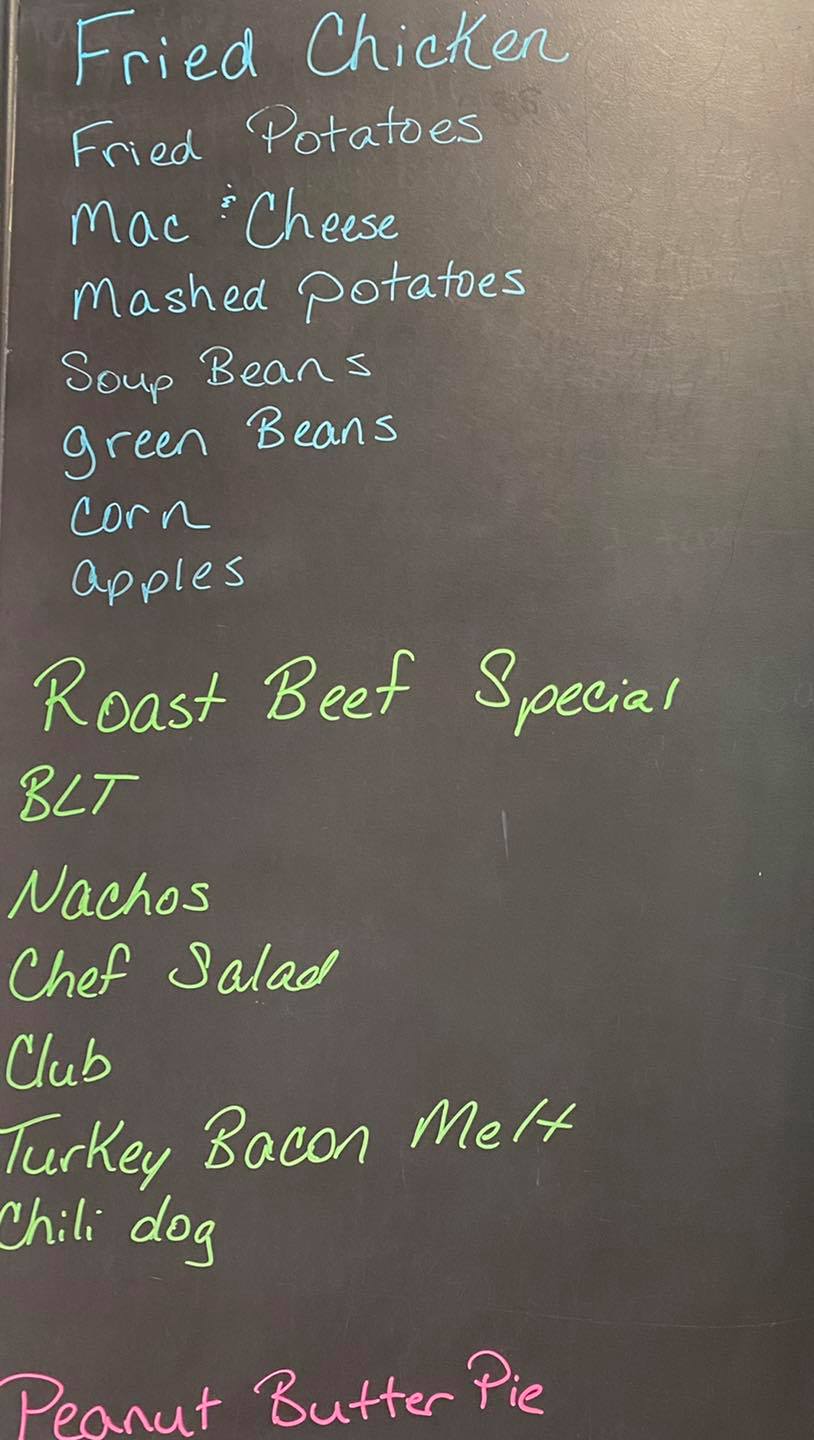 Fried Chicken
Fried Potatoes
Mac & Cheese
Mashed potatoes
Soup Beans
green Beans
Corn
apples
Roast Beef Special
BLT
Nachos
Chef Salad
Club
Turkey Bacon Melt
Chili dog
Peanut Butter Pie